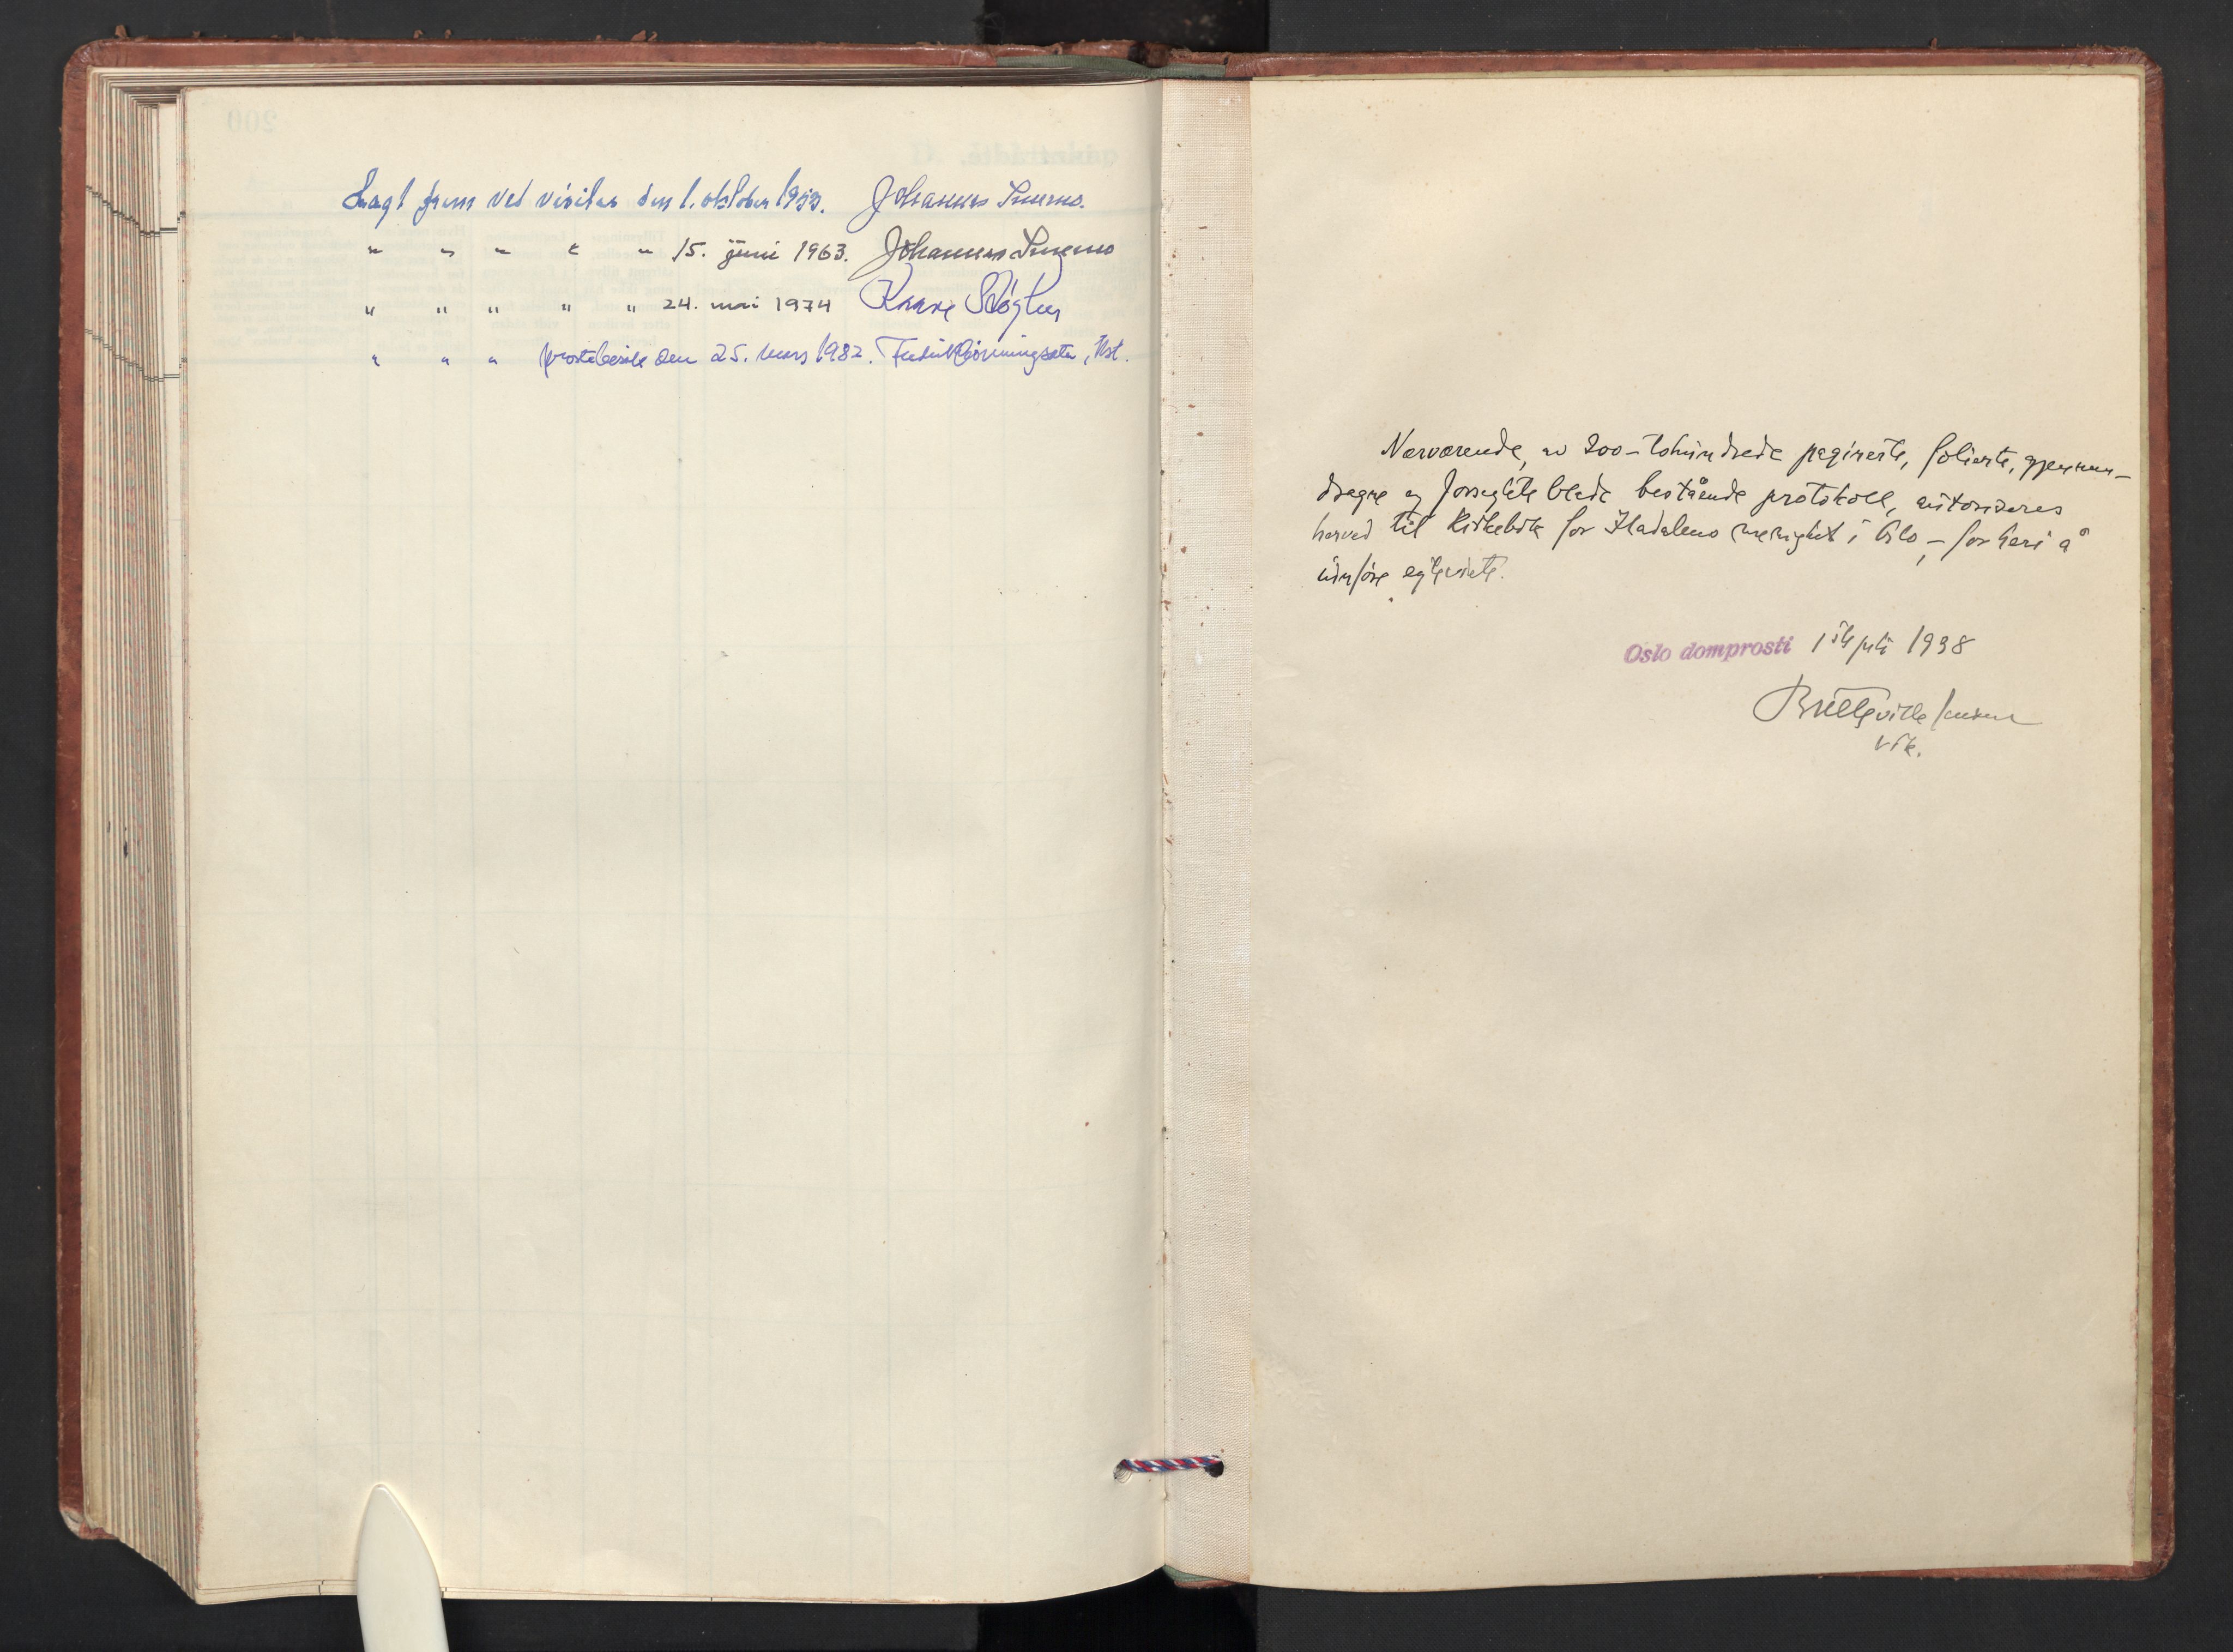 Lagt frem ved visitas den 1. oktober 1953. Johannes Smemo.
" " " " " 15. juni 1963. Johannes Smemo
" " " " " 24. mai 1974 Kaare Støylen
" " " prostebesøk den 25. mars 1982. Fredrik Grønningsæter, kst.
Nærværende, av 200 - tohundrede paginerte, folierte, gjennem-
dragne og forseglete blade bestående protokoll, autoriseres
herved til kirkebok for Iladalens menighet i Oslo, - for heri å
innføre egteviete.
Oslo domprosti 1ste juli 1938
Bretteville Jensen
vik.